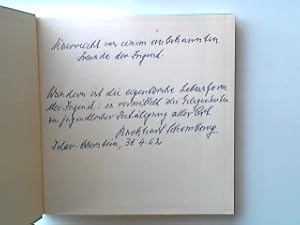 Überreicht von einem unbekannten
Freunde der Jugend.
Wandern ist die eigentliche Lebensform
der Jugend; es vermittelt die Gelegenheiten
zu jugendlicher Betätigung aller Art.
Burkhart Schomburg
Idar-Oberstein, 30.4.62